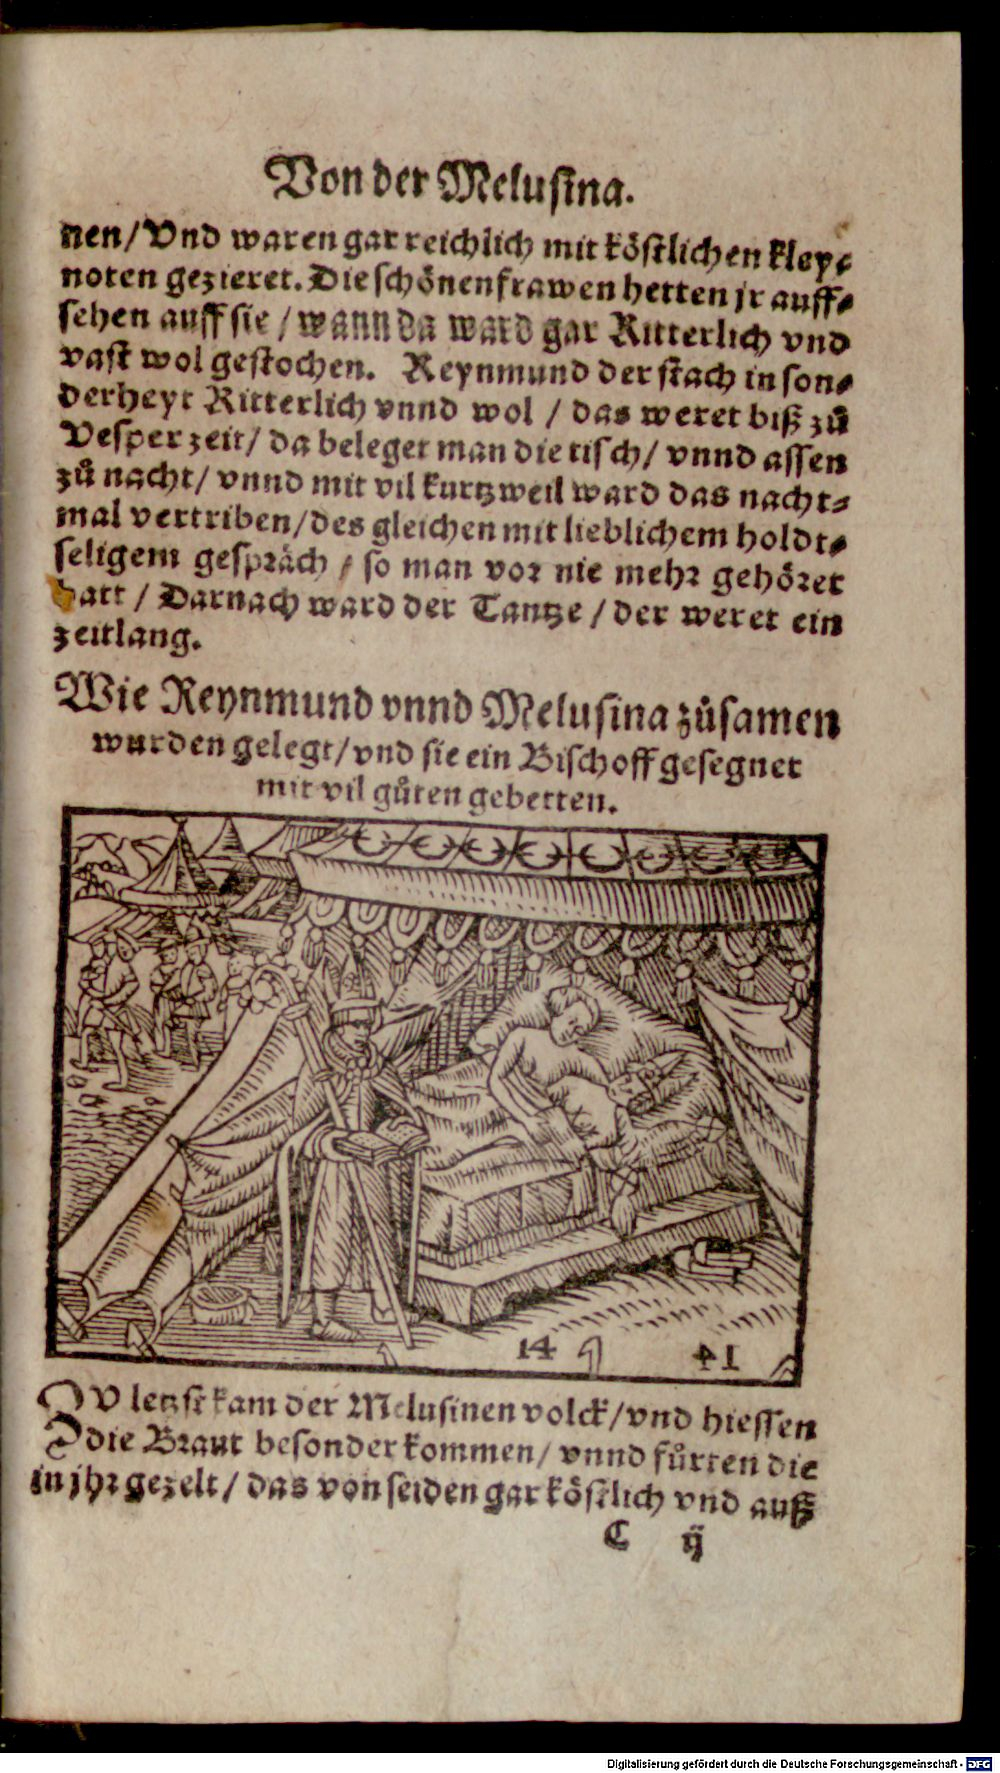 Von der Melusina.
nen/ Vnd waren gar reichlich mit köstlichen kley⸗
noten gezieret. Die schönen frawen hetten jr auff⸗
sehen auff sie / wann da ward gar Ritterlich vnd
vast wol gestochen. Reynmund der stach in son⸗
derheyt Ritterlich vnnd wol / das weret biß zů
Vesper zeit/ da beleget man die tisch/ vnnd assen
zů nacht/ vnnd mit vil kurtzweil ward das nacht⸗
mal vertriben/ des gleichen mit lieblichem holdt⸗
seligem gespräch / so man vor nie mehr gehöret
hatt / Darnach ward der Tantze / der weret ein
zeitlang.
Wie Reynmund vnnd Melusina zůsamen
wurden gelegt/ vnd sie ein Bischoff gesegnet
mit vil gůten gebetten.
14 41
ZV letzst kam der Melusinen volck/ vnd hiessen
die Braut besonder kommen/ vnnd fůrten die
in jhr gezelt/ das von seiden gar köstlich vnd auß
C ij
Digitalisierung gefördert durch die Deutsche Forschungsgemeinschaft - DFG